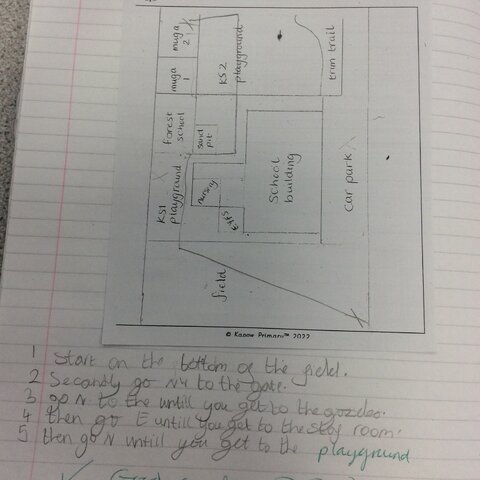 muga 2
muga 1
KS2 playground
trim trail
forest school
sand pit
KS1 playground
nursing
EYFS
School building
car park
field
© Kapow Primary™ 2022
1 Start on the bottom of the field.
2 Secondly go NW to the gate.
3 go N to the untill you get to the gozebo.
4 then go E untill you get to the stay room.
5 then go N untill you get to the playground